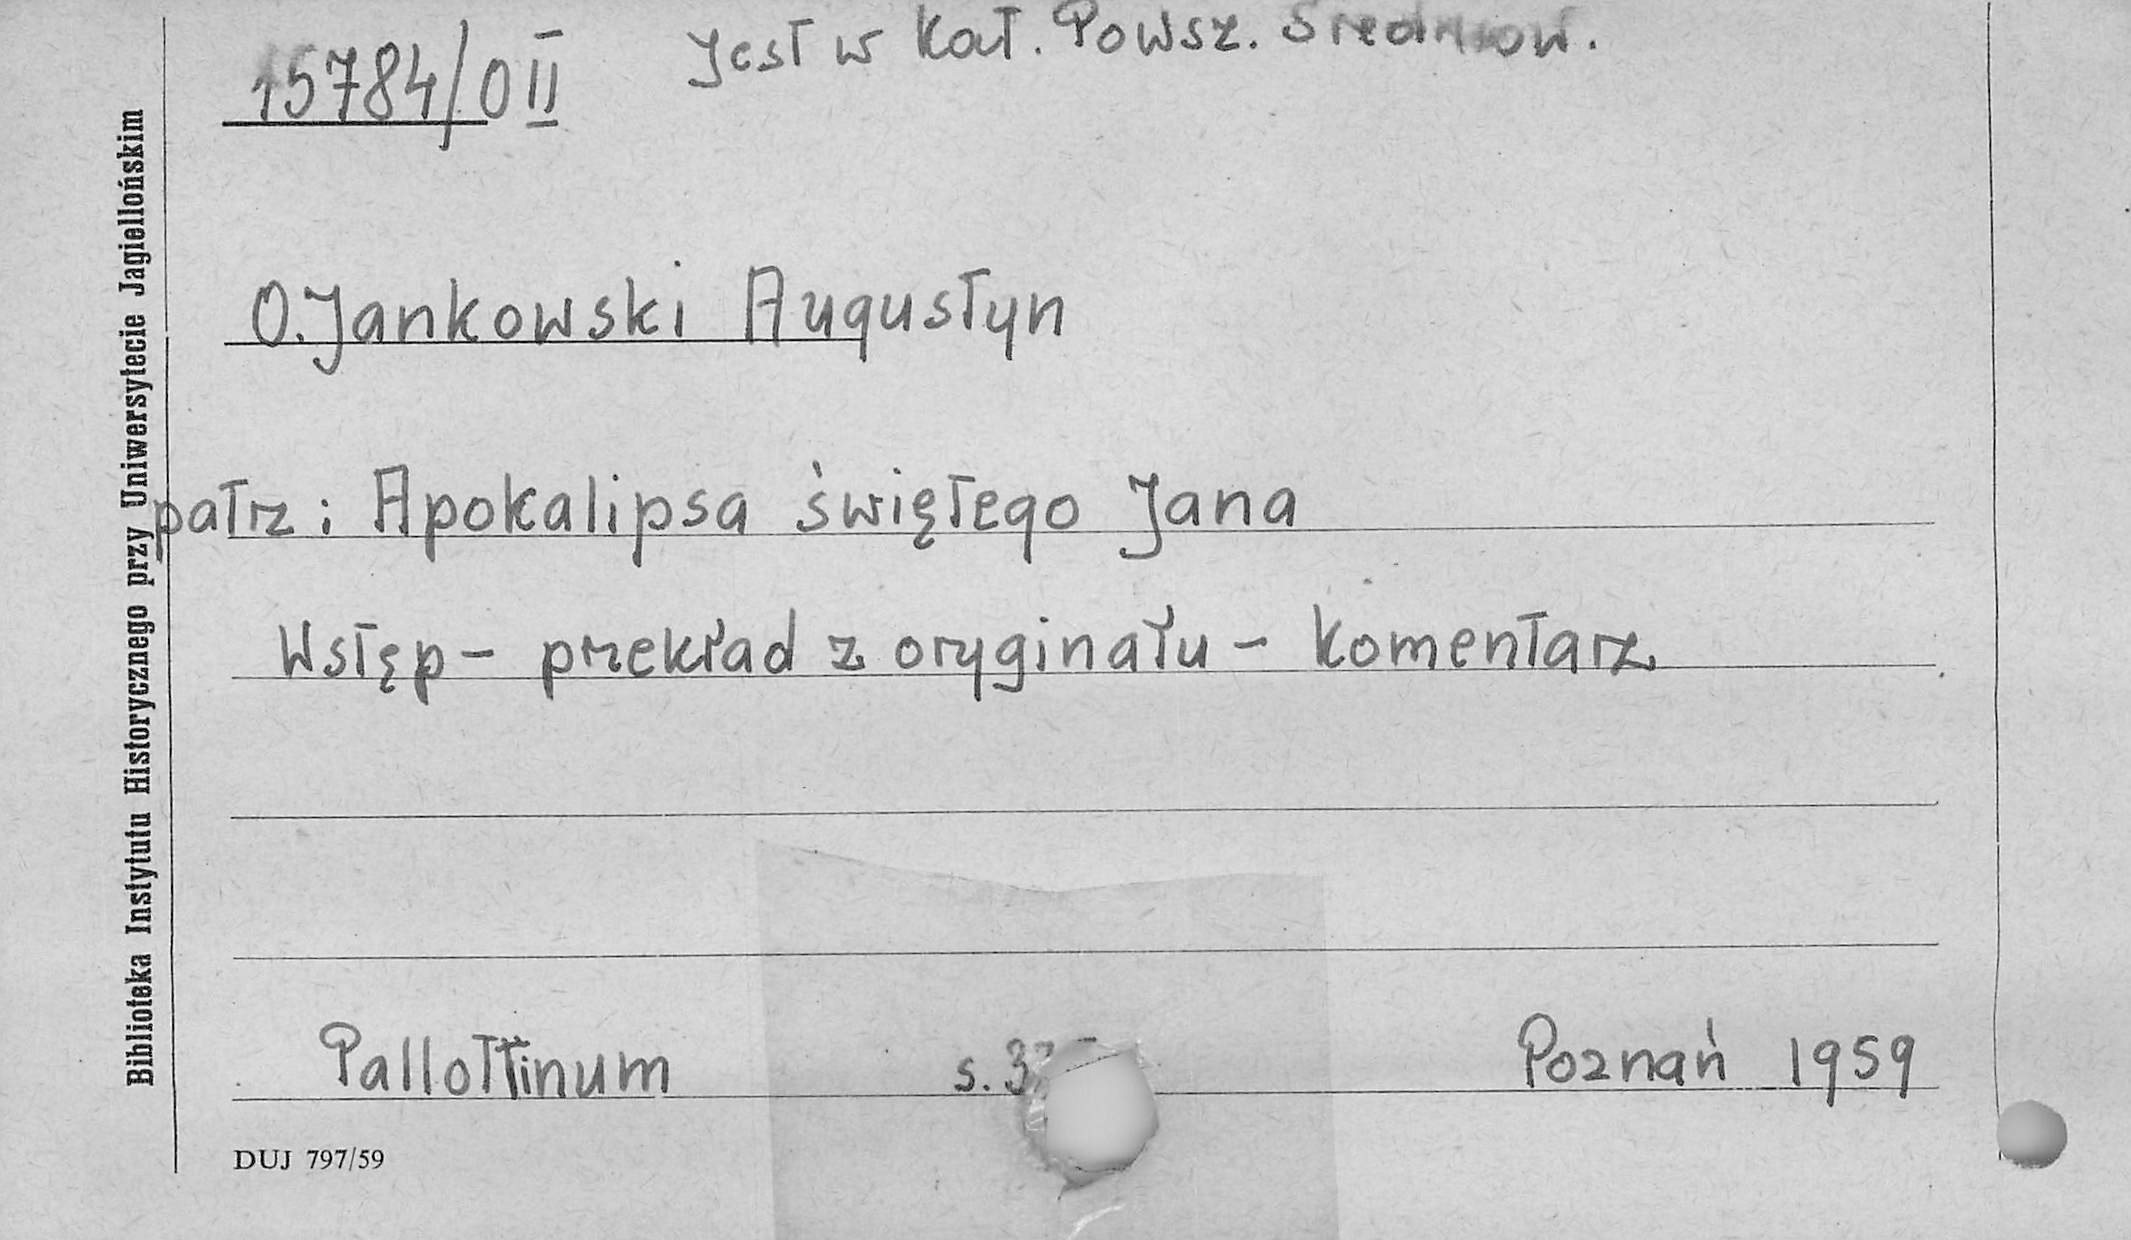 15784/O II
Jest w Kat. Powsz. Średniow.
O. Jankowski Augustyn
patrz: Apokalipsa świętego Jana
Wstęp - przekład z oryginału - Komentarz
Pallottinum s. Poznań 1959
DUJ 797/59
Biblioteka Instytutu Historycznego przy Uniwersytecie Jagiellońskim